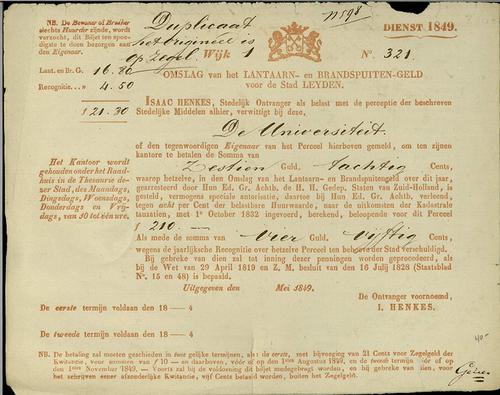 NB. De Bewoner of Bruiker
slechts Huurder zijnde, wordt
verzocht, dit Biljet ten spoe-
digste te doen bezorgen aan
den Eigenaar.
Duplicaat
het origineel is
op zegel.
DIENST 1849.
Wijk 1
No. 321.
Lant. en Br. G. 16.80
Recognitie 4.50
ƒ 21.30
OMSLAG van het LANTAARN- en BRANDSPUITEN-GELD
voor de Stad LEYDEN.
ISAAC HENKES, Stedelijk Ontvanger als belast met de perceptie der beschreven
Stedelijke Middelen alhier, verwittigt bij deze,
De Universiteit.
of den tegenwoordigen Eigenaar van het Perceel hierboven gemeld, om ten zijnen
kantore te betalen de Somma van
Zestien Guld. tachtig Cents,
waarop hetzelve, in den Omslag van het Lantaarn- en Brandspuitengeld over dit jaar,
gearresteerd door Hun Ed. Gr. Achtb. de H. H. Gedep. Staten van Zuid-Holland, is
gesteld, vermogens speciale autorisatie, daartoe bij Hun Ed. Gr. Achtb. verleend,
tegen acht per Cent der belastbare Huurwaarde, naar de uitkomsten der Kadastrale
taxatien, met 1e October 1832 ingevoerd, berekend, beloopende voor dit Perceel
ƒ 210.—
Als mede de somma van Vier Guld. Vijftig Cents,
wegens de jaarlijksche Recognitie over hetzelve Perceel ten behoeve der Stad verschuldigd.
Bij gebreke van dien zal tot inning dezer penningen worden geprocedeerd, als
bij de Wet van 29 April 1819 en Z. M. besluit van 16 Julij 1828 (Staatsblad
No. 15 en 48) is bepaald.
Het Kantoor wordt
gehouden onder het Raad-
huis in de Thesaurie de-
zer Stad, des Maandags,
Dingsdags, Woensdags,
Donderdags en Vrij-
dags, van 10 tot één ure,
Uitgegeven den Mei 1849.
De Ontvanger voornoemd,
I. HENKES.
De eerste termijn voldaan den 18 — 4
De tweede termijn voldaan den 18 — 4
NB. De betaling zal moeten geschieden in twee gelijke termijnen, als: de eerste, met bijvoeging van 21 Cents voor Zegelgeld der
Kwitantie, voor sommen van ƒ 10 — en daarboven, vóór of op den 1sten Augustus 1849, en de tweede termijn vóór of op
den 1sten November 1849. — Voorts zal bij de voldoening dit biljet medegebragt worden, en bij gebreke van dien, voor
het schrijven eener afzonderlijke Kwitantie, vijf Cents betaald worden, buiten het Zegelgeld.